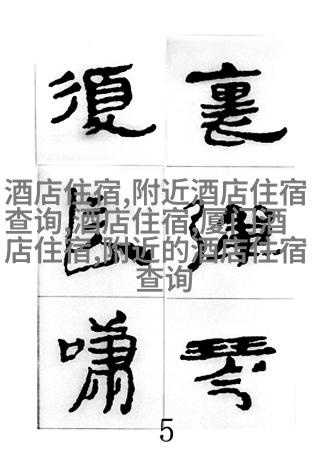 裏彈琴
復長嘯
酒店住宿,附近酒店住宿
查询,酒店住宿,厦门酒
店住宿,附近的酒店住宿
查询
5